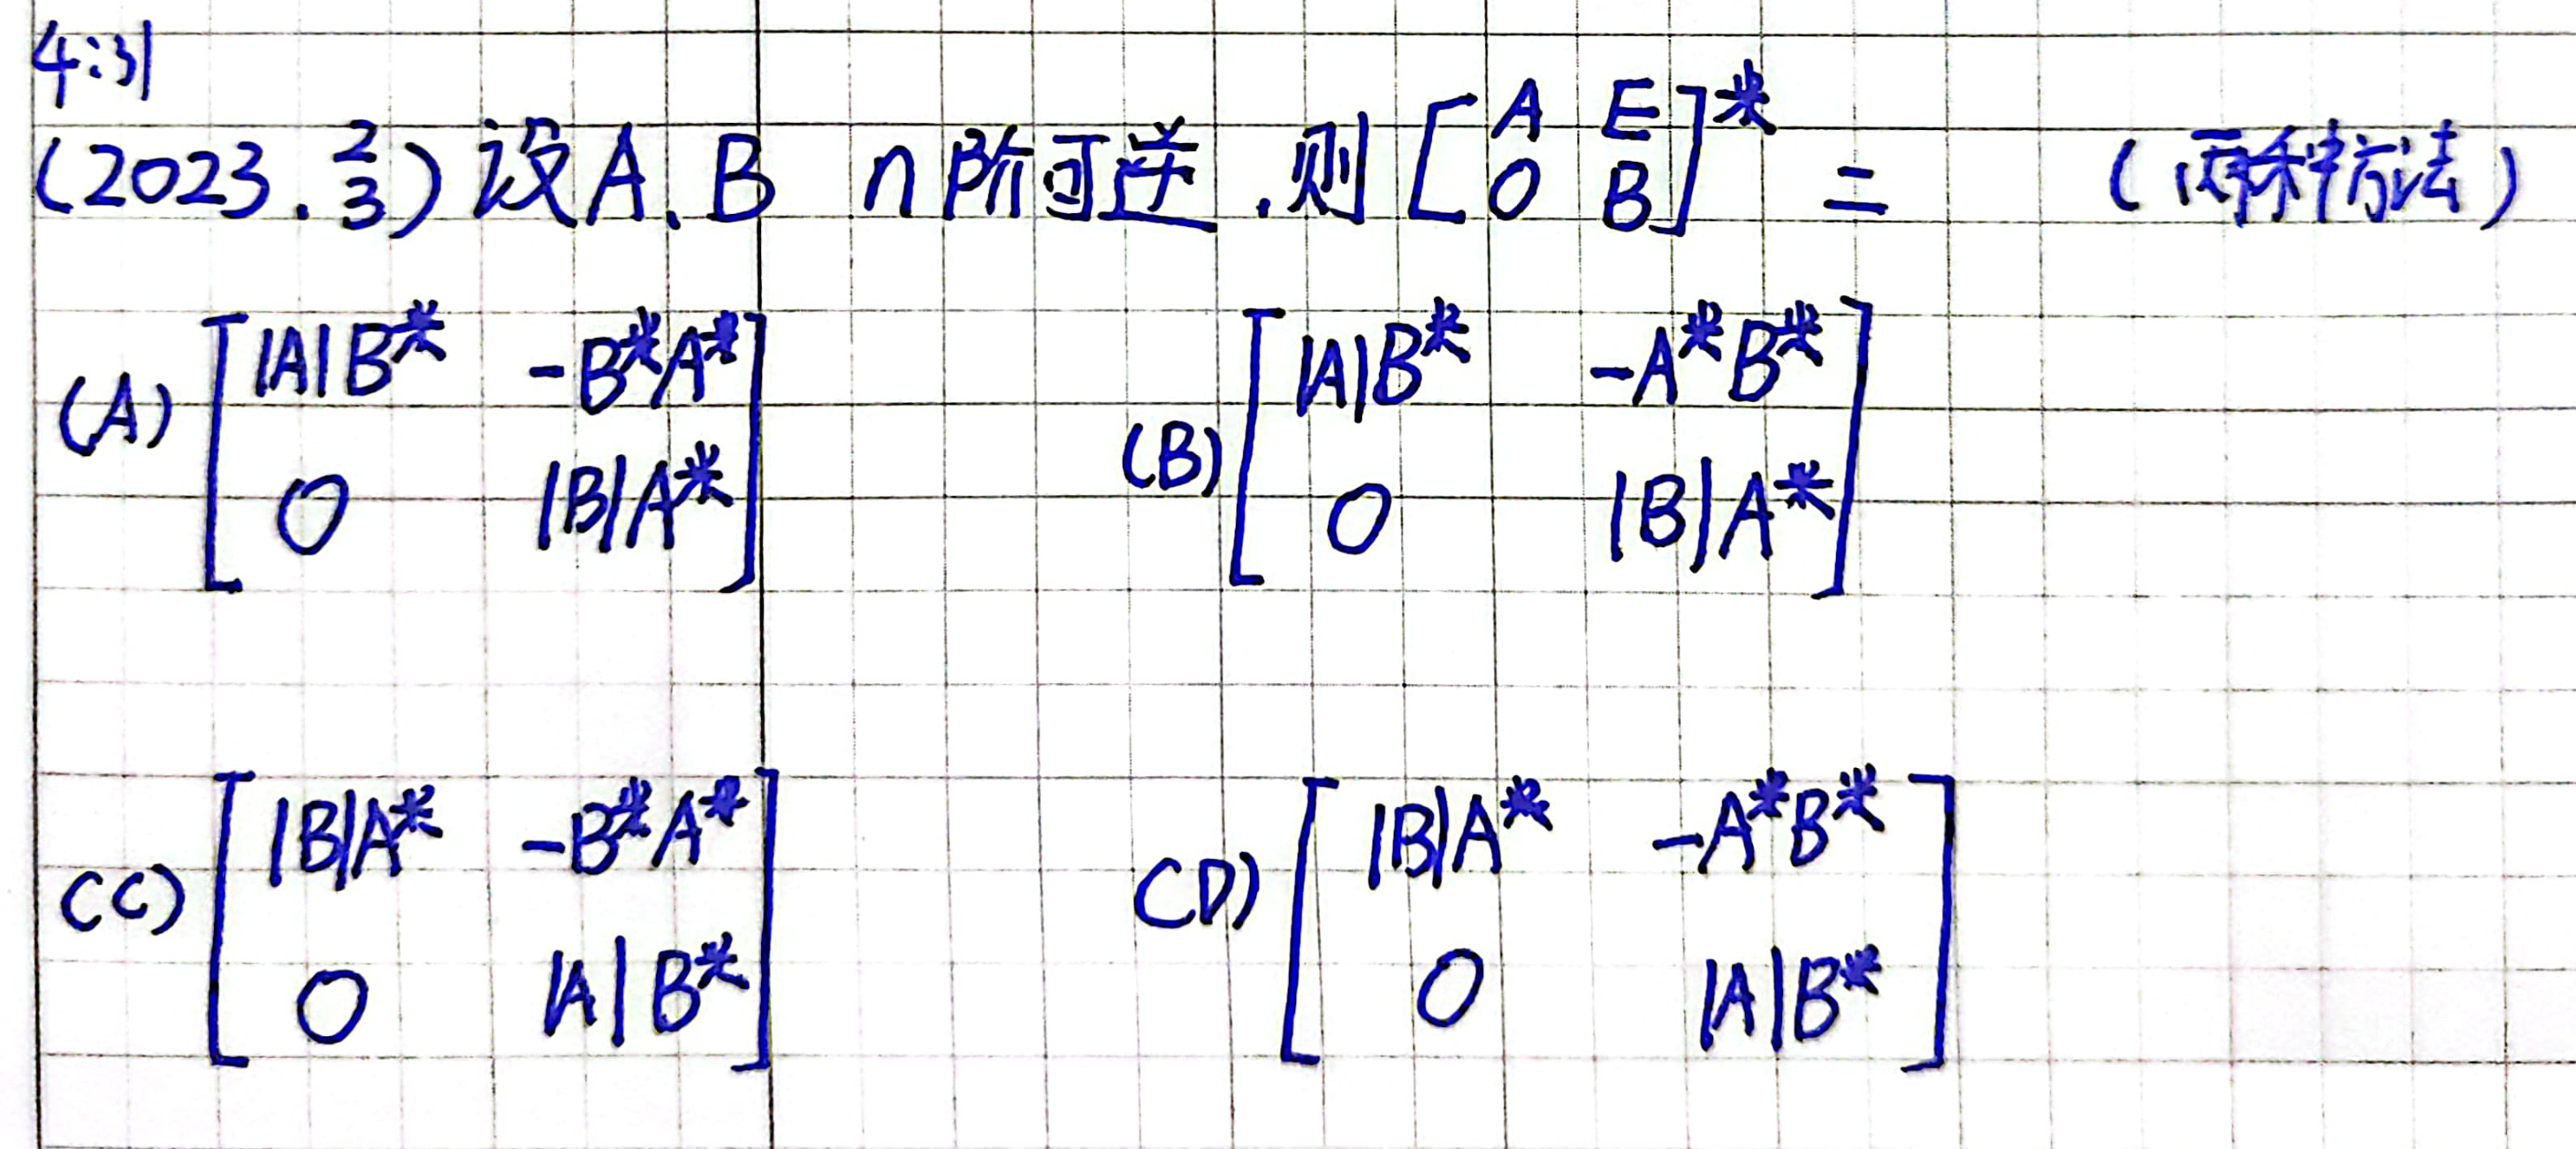 4:31
(2023. 2/3) 设A、B n阶可逆.则[A E; O B]* = (两种方法)
(A) [|A|B* -B*A*; O |B|A*] (B) [|A|B* -A*B*; O |B|A*]
(C) [|B|A* -B*A*; O |A|B*] (D) [|B|A* -A*B*; O |A|B*]